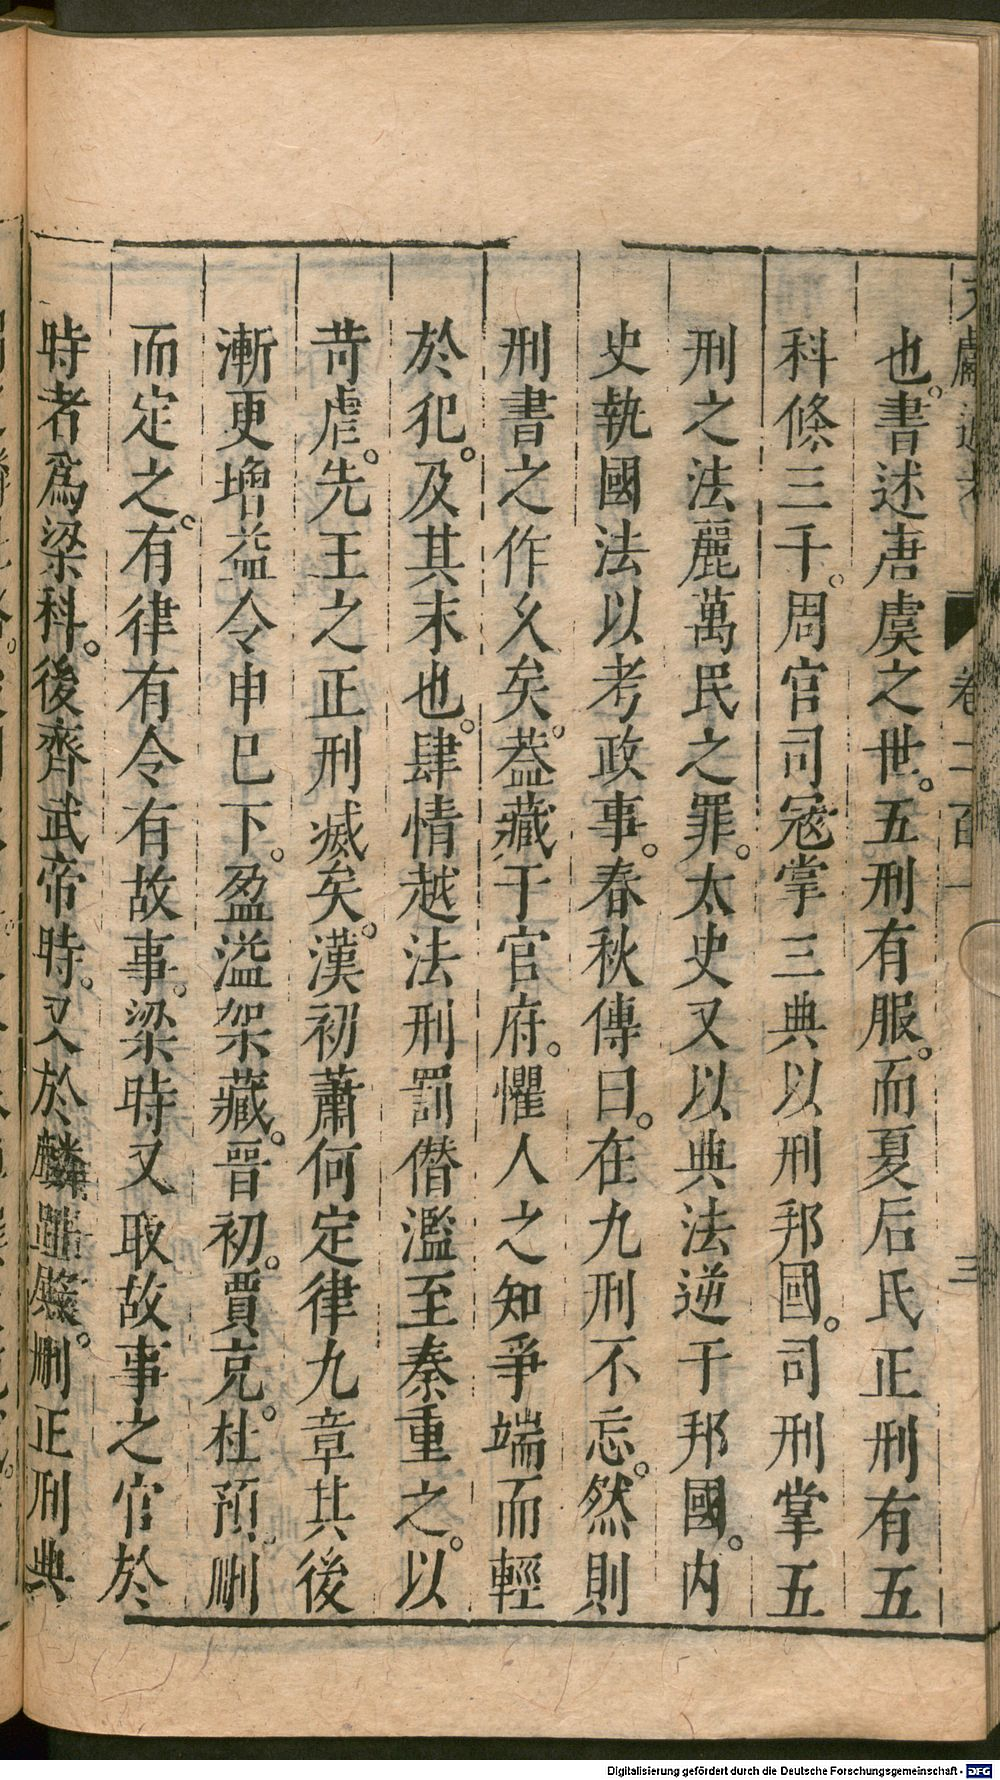 文獻通考 卷二百一 三
也。書述唐虞之世。五刑有服。而夏后氏正刑有五
科條三千。周官司寇掌三典以刑邦國。司刑掌五
刑之法麗萬民之罪。太史又以典法逆于邦國。內
史執國法以考政事。春秋傳曰。在九刑不忘。然則
刑書之作久矣。葢藏于官府。懼人之知爭端而輕
於犯。及其末也。肆情越法刑罰僭濫至秦重之。以
苛虐。先王之正刑滅矣。漢初蕭何定律九章其後
漸更增益令甲已下。盈溢架藏。晉初。賈充。杜預。刪
而定之。有律有令有故事。梁時又取故事之宜於
時者爲梁科。後齊武帝時。又於麟趾殿。刪正刑典
Digitalisierung gefördert durch die Deutsche Forschungsgemeinschaft - DFG